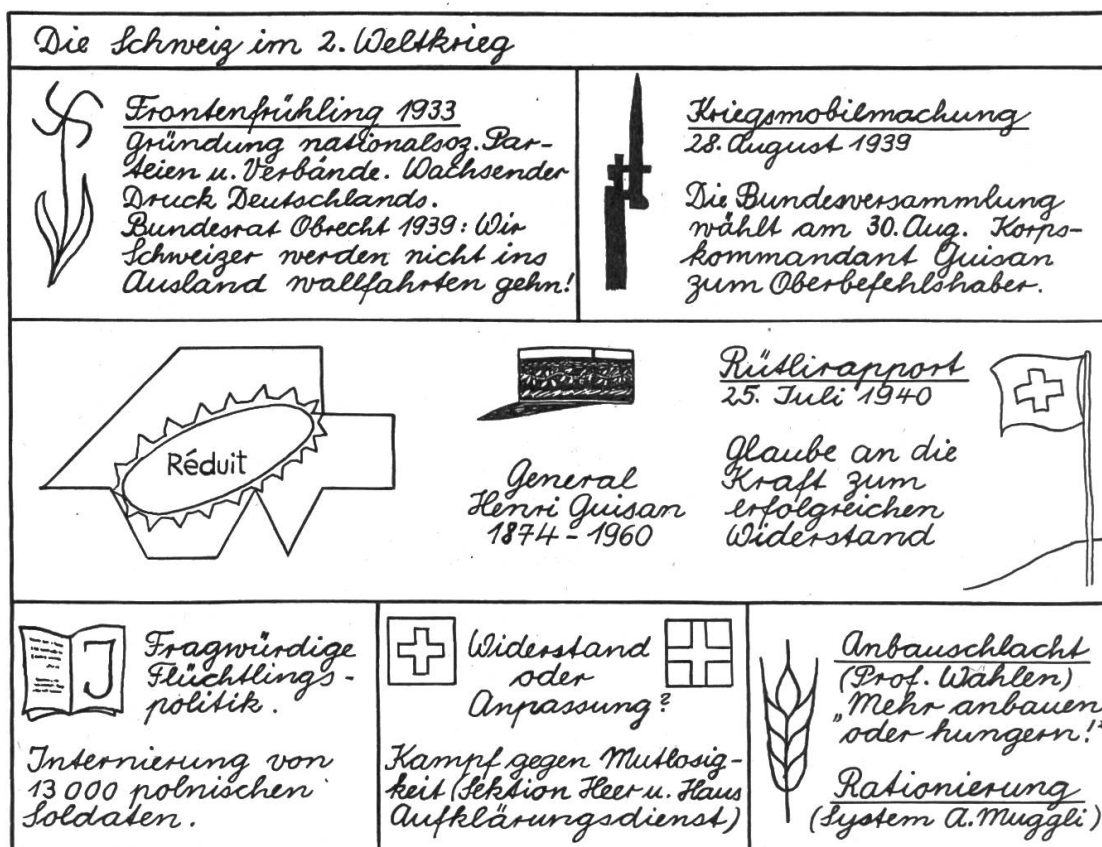 Die Schweiz im 2. Weltkrieg
Frontenfrühling 1933
Gründung nationalsoz. Par-
teien u. Verbände. Wachsender
Druck Deutschlands.
Bundesrat Obrecht 1939: Wir
Schweizer werden nicht ins
Ausland wallfahrten gehn!
Kriegsmobilmachung
28. August 1939
Die Bundesversammlung
wählt am 30. Aug. Korps-
kommandant Guisan
zum Oberbefehlshaber.
Réduit
General
Henri Guisan
1874 - 1960
Rütlirapport
25. Juli 1940
Glaube an die
Kraft zum
erfolgreichen
Widerstand
J
Fragwürdige
Flüchtlings-
politik.
Internierung von
13 000 polnischen
Soldaten.
Widerstand
oder
Anpassung?
Kampf gegen Mutlosig-
keit (Sektion Heer u. Haus
Aufklärungsdienst)
Anbauschlacht
(Prof. Wahlen)
„Mehr anbauen
oder hungern!"
Rationierung
(System A. Muggli)